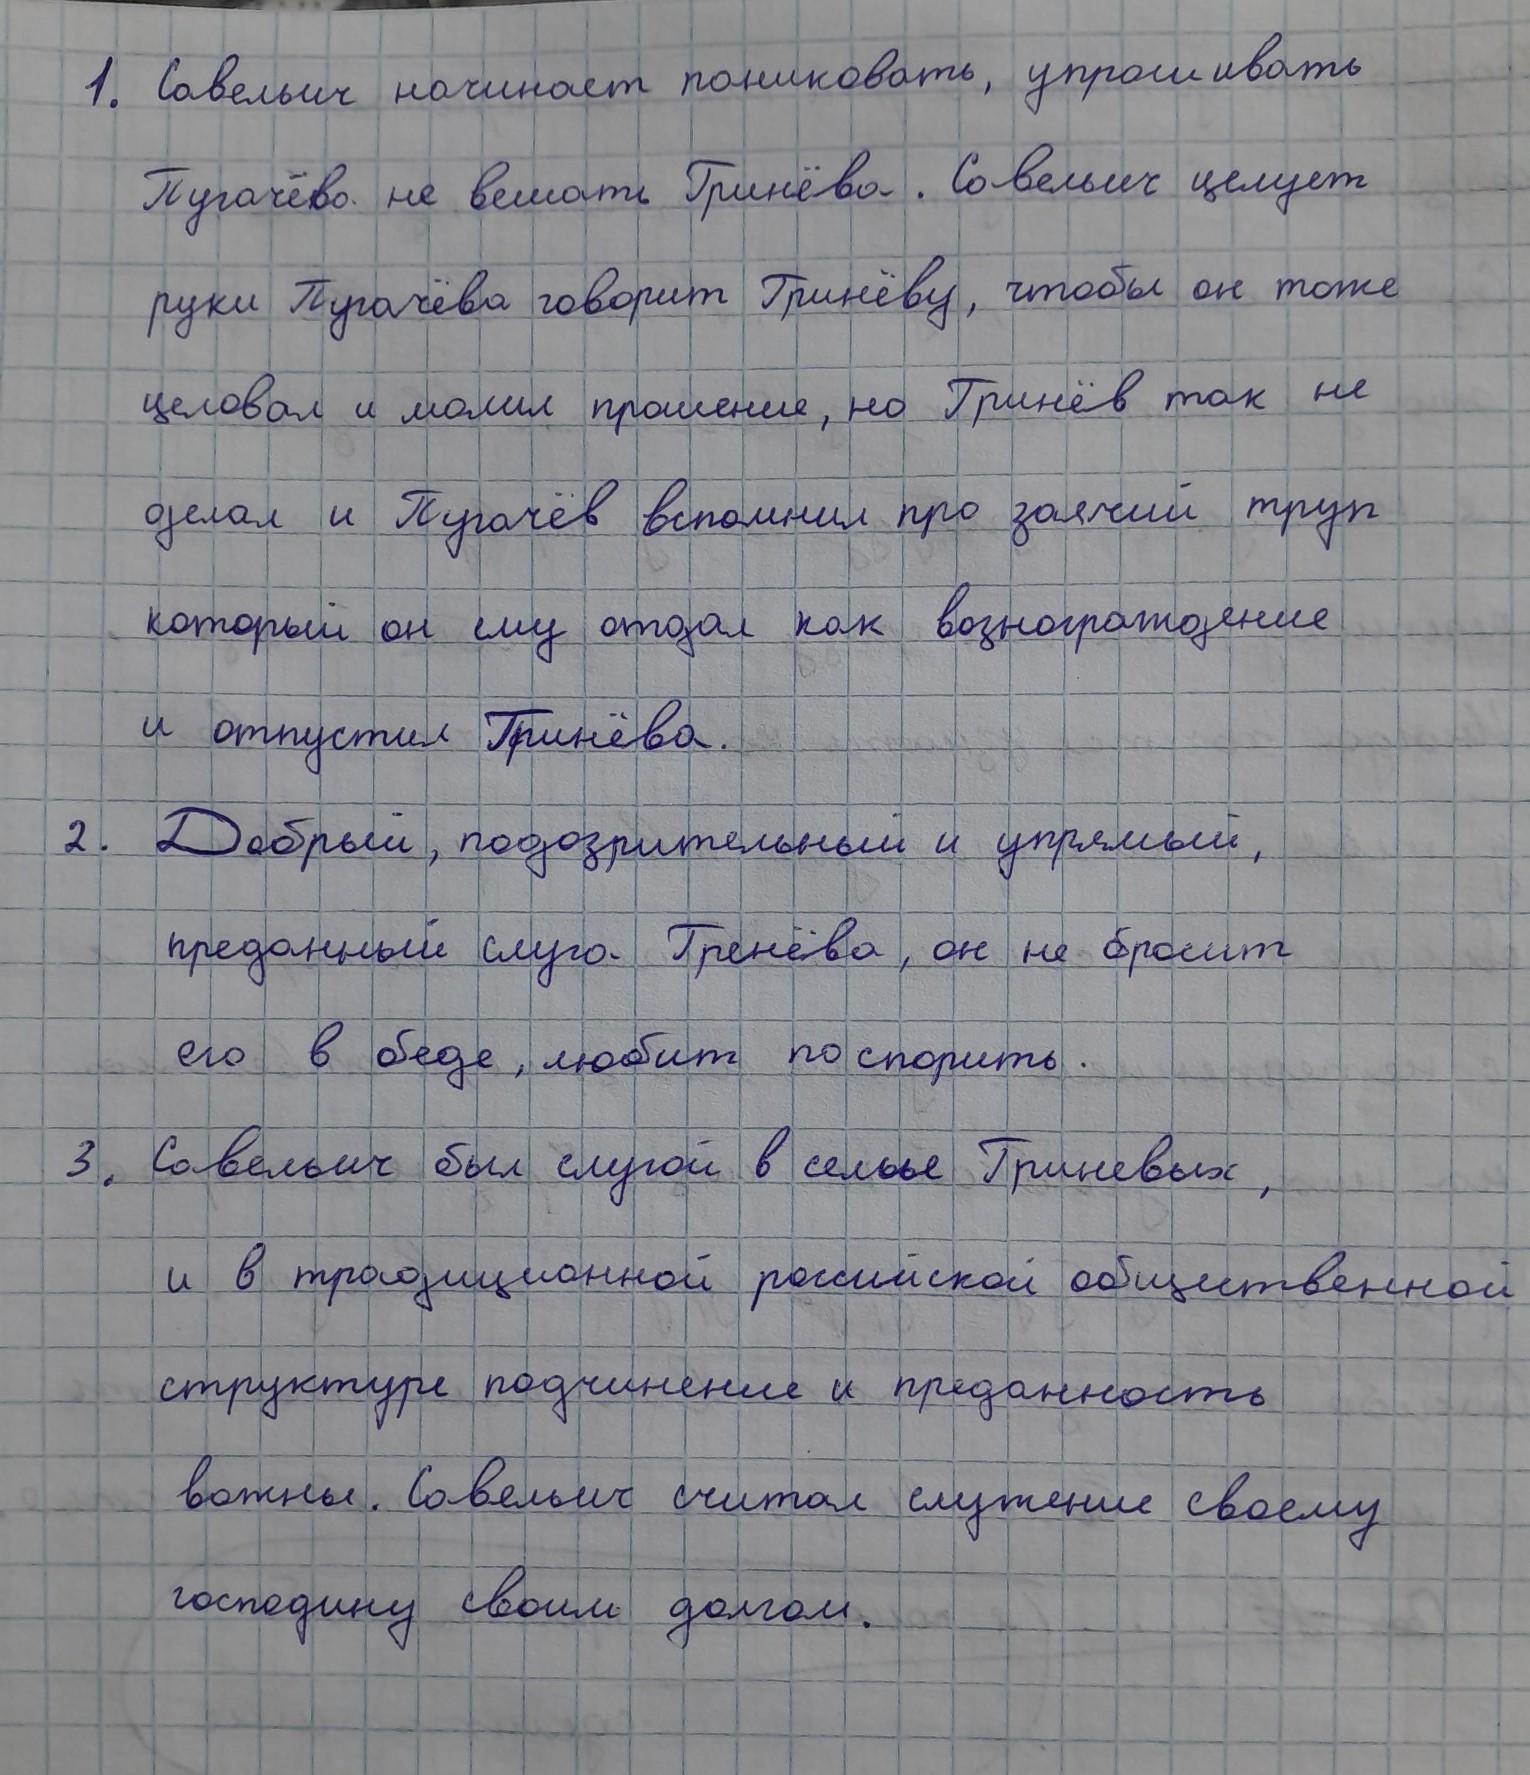 1. Савельич начинает паниковать, упрашивать
Пугачёва не вешать Гринёва. Савельич целует
руки Пугачёва говорит Гринёву, чтобы он тоже
целовал и молил прошение, но Гринёв так не
делал и Пугачёв вспомнил про заячий труп
который он ему отдал как вознограждение
и отпустил Гринёва.
2. Добрый, подозрительный и упрямый,
преданный слуга Гренёва, он не бросит
его в беде, любит поспорить.
3. Савельич был слугой в семье Гриневых,
и в традиционной российской общественной
структуре подчинение и преданность
важны. Савельич считал служение своему
господину своим долгом.